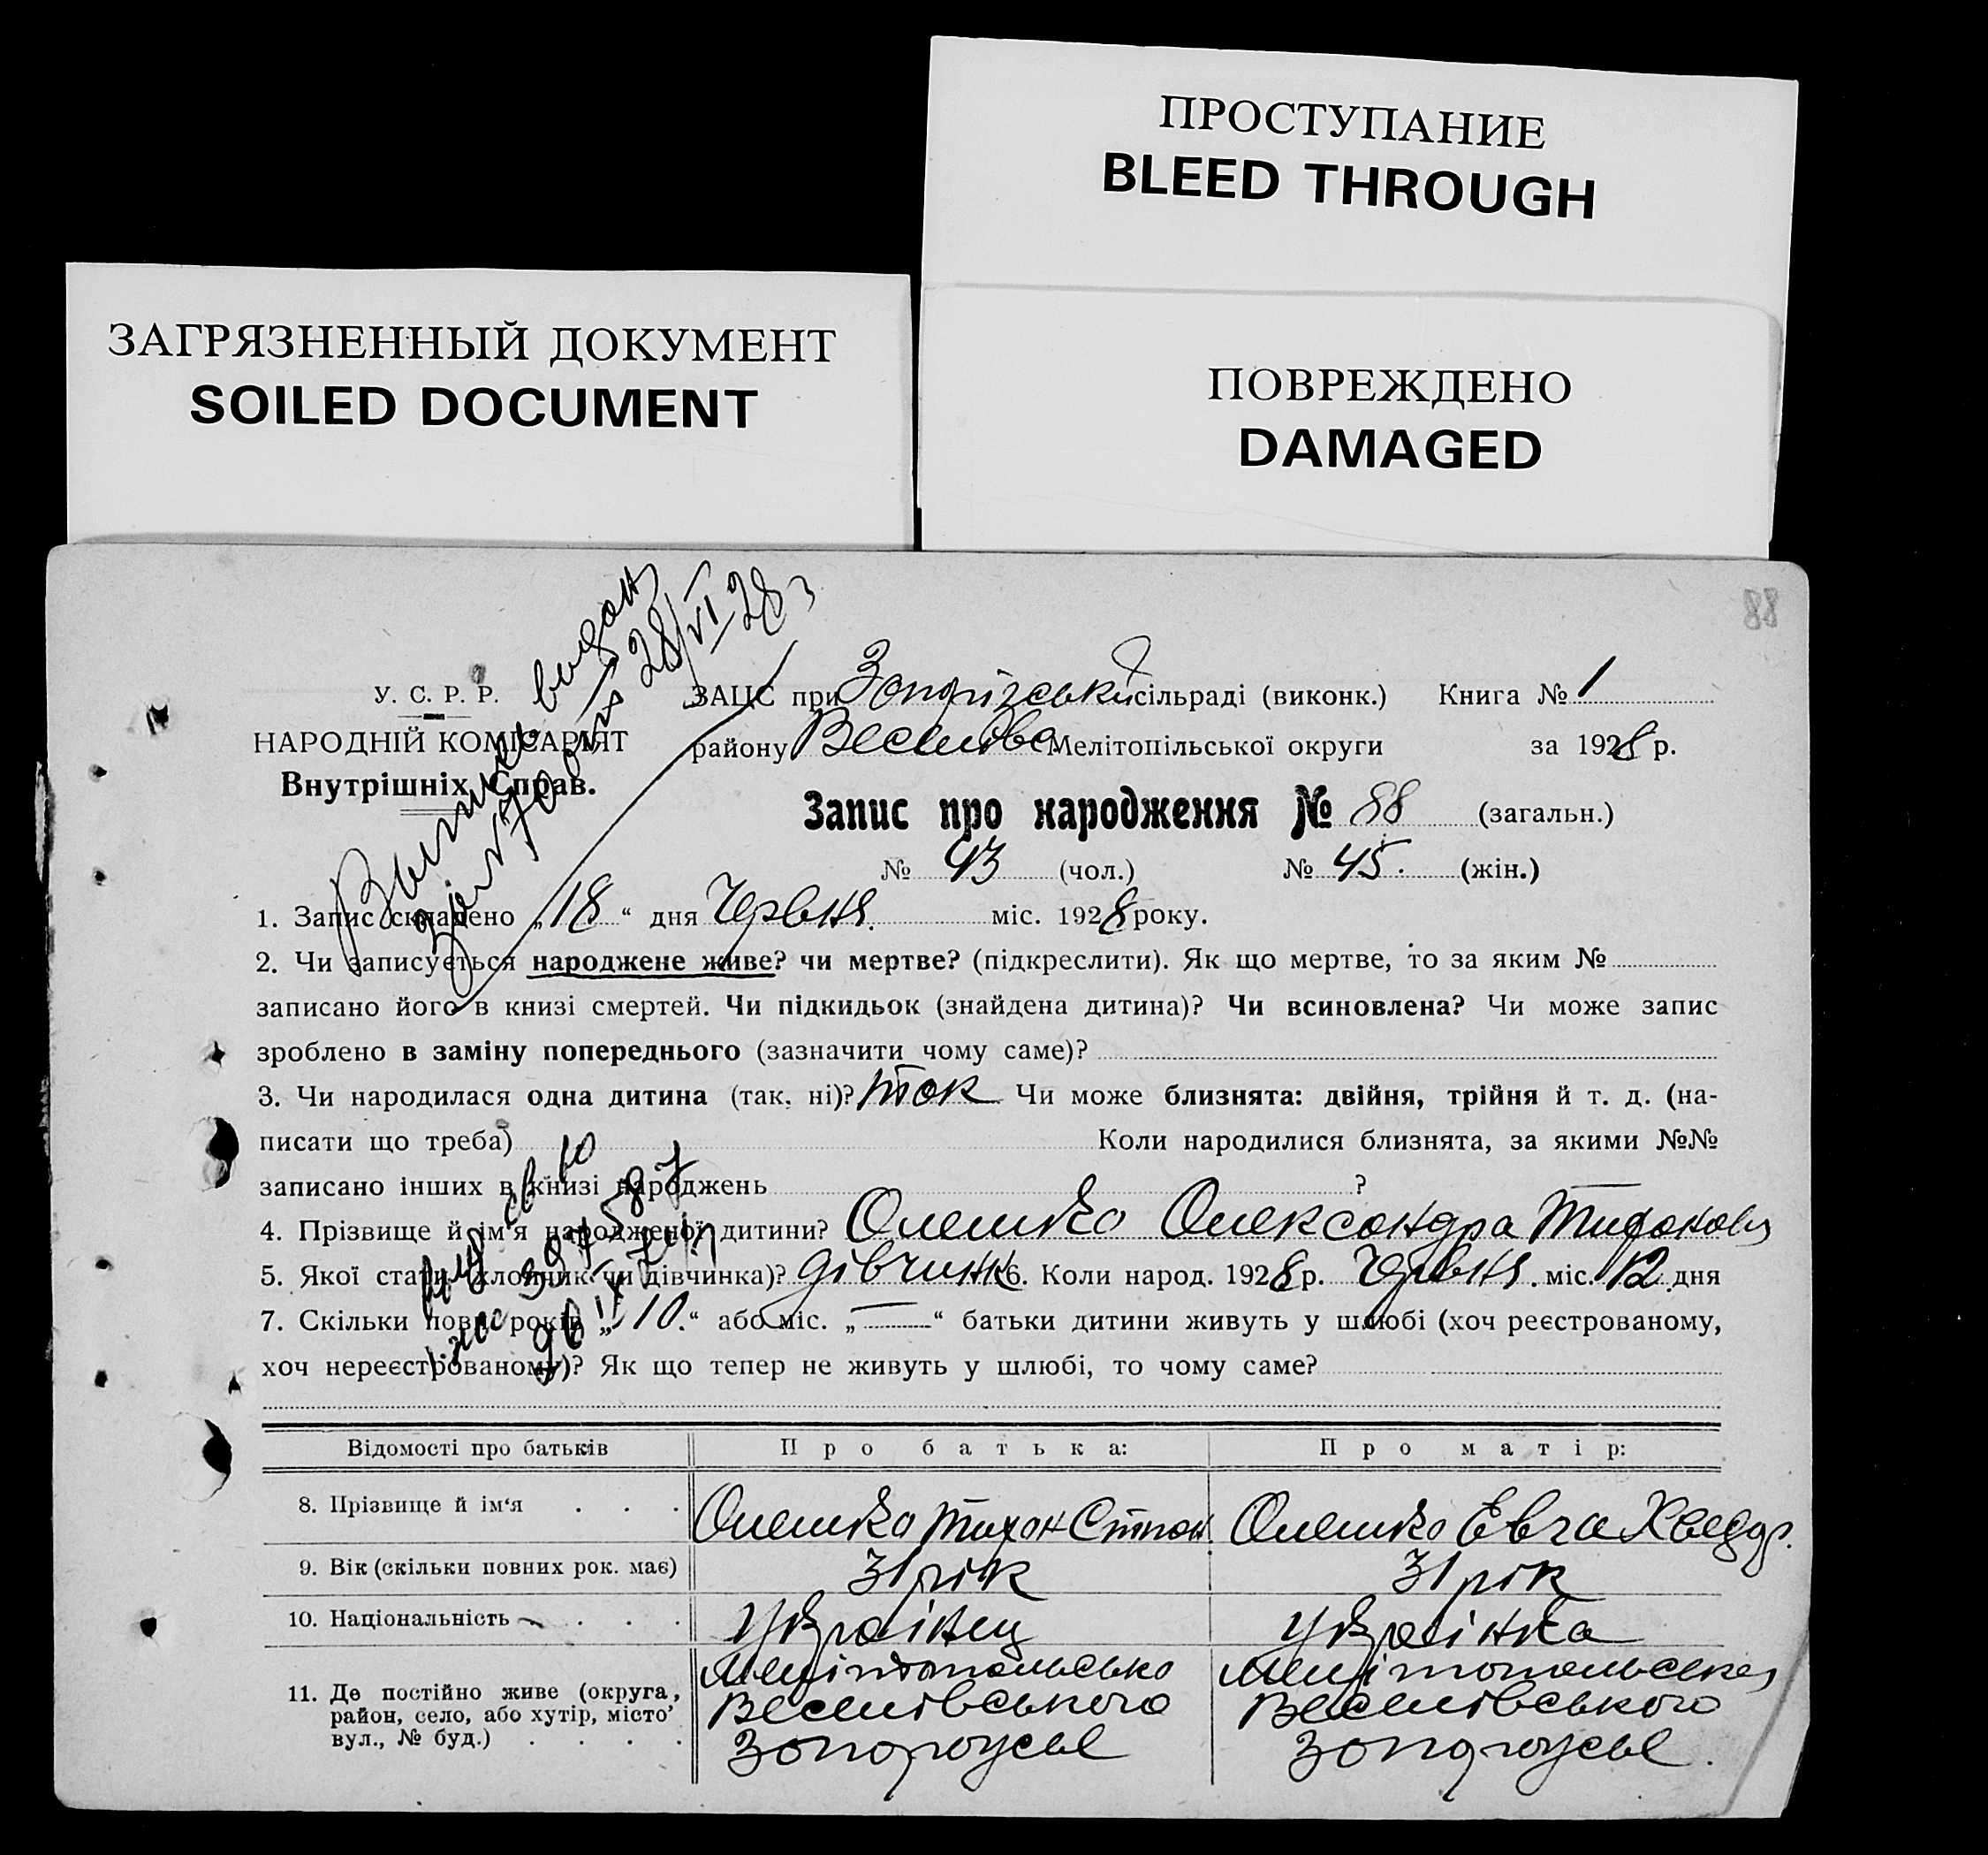 ПРОСТУПАНИЕ
BLEED THROUGH
ЗАГРЯЗНЕННЫЙ ДОКУМЕНТ
SOILED DOCUMENT
ПОВРЕЖДЕНО
DAMAGED
88
28/VI 28
У. С. Р. Р.
НАРОДНІЙ КОМІСАРІЯТ
Внутрішніх Справ.
ЗАЦС при сільраді (виконк.) Книга № 1
району Мелітопільської округи за 1928 р.
Запис про народження № 88 (загальн.)
№ 43 (чол.) № 45. (жін.)
1. Запис складено „18“ дня Червня. міс. 1928 року.
2. Чи записується народжене живе? чи мертве? (підкреслити). Як що мертве, то за яким №
записано його в книзі смертей. Чи підкидьок (знайдена дитина)? Чи всиновлена? Чи може запис
зроблено в заміну попереднього (зазначити чому саме)?
3. Чи народилася одна дитина (так, ні)? так Чи може близнята: двійня, трійня й т. д. (на-
писати що треба) Коли народилися близнята, за якими №№
записано інших в книзі народжень ?
4. Прізвище й ім'я народженої дитини? Олешко Олександра Тихонов
5. Якої стати (хлопчик чи дівчинка)? дівчинка 6. Коли народ. 1928 р. Червня. міс. 12 дня
7. Скільки повн. років „10.“ або міс. „—“ батьки дитини живуть у шлюбі (хоч реєстрованому,
хоч нереєстрованому)? Як що тепер не живуть у шлюбі, то чому саме?
Відомості про батьків Про батька: Про матір:
8. Прізвище й ім‘я . . . Олешко Тихон Степан. Олешко Евга
9. Вік (скільки повних рок. має) 31 рік 31 рік
10. Національність . . . Українец Українка
11. Де постійно живе (округа, район, село, або хутір, місто, вул., № буд.) . . . .
Мелітопольсько Мелітопольсько
Веселівського Веселівського